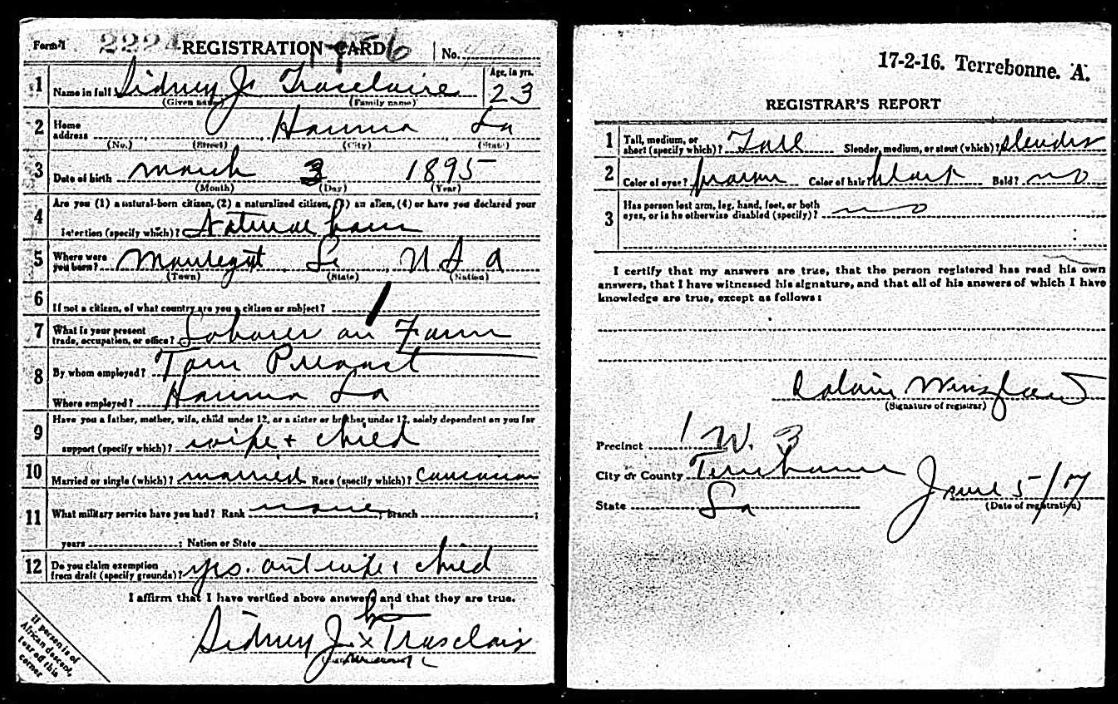 Form 1 2224 REGISTRATION CARD No.
1 Name in full Sidney J. Trasclaire Age, in yrs. 23
(Given name) (Family name)
2 Home address Houma La
(No.) (Street) (City) (State)
3 Date of birth March 3 1895
(Month) (Day) (Year)
Are you (1) a natural-born citizen, (2) a naturalized citizen, (3) an alien, (4) or have you declared your
4 intention (specify which)? Natural born
5 Where were you born? Montegut La U S A
(Town) (State) (Nation)
6 If not a citizen, of what country are you a citizen or subject?
7 What is your present trade, occupation, or office? Laborer on Farm
8 By whom employed? Tom
Where employed? Houma La
Have you a father, mother, wife, child under 12, or a sister or brother under 12, solely dependent on you for
9 support (specify which)? wife + child
10 Married or single (which)? married Race (specify which)? Caucasian
11 What military service have you had? Rank none ; branch ;
years ; Nation or State
12 Do you claim exemption from draft (specify grounds)? yes. wife + child
I affirm that I have verified above answers and that they are true.
his
Sidney J. x Trasclair
mark
If person is of African descent, tear off this corner
17-2-16. Terrebonne. A.
REGISTRAR'S REPORT
1 Tall, medium, or short (specify which)? Tall Slender, medium, or stout (which)? slender
2 Color of eyes? brown Color of hair? black Bald? no
3 Has person lost arm, leg, hand, feet, or both eyes, or is he otherwise disabled (specify)? no
I certify that my answers are true, that the person registered has read his own
answers, that I have witnessed his signature, and that all of his answers of which I have
knowledge are true, except as follows:
(Signature of registrar)
Precinct 1 W. 3
City or County Terrebonne
State La
June 5/17
(Date of registration)